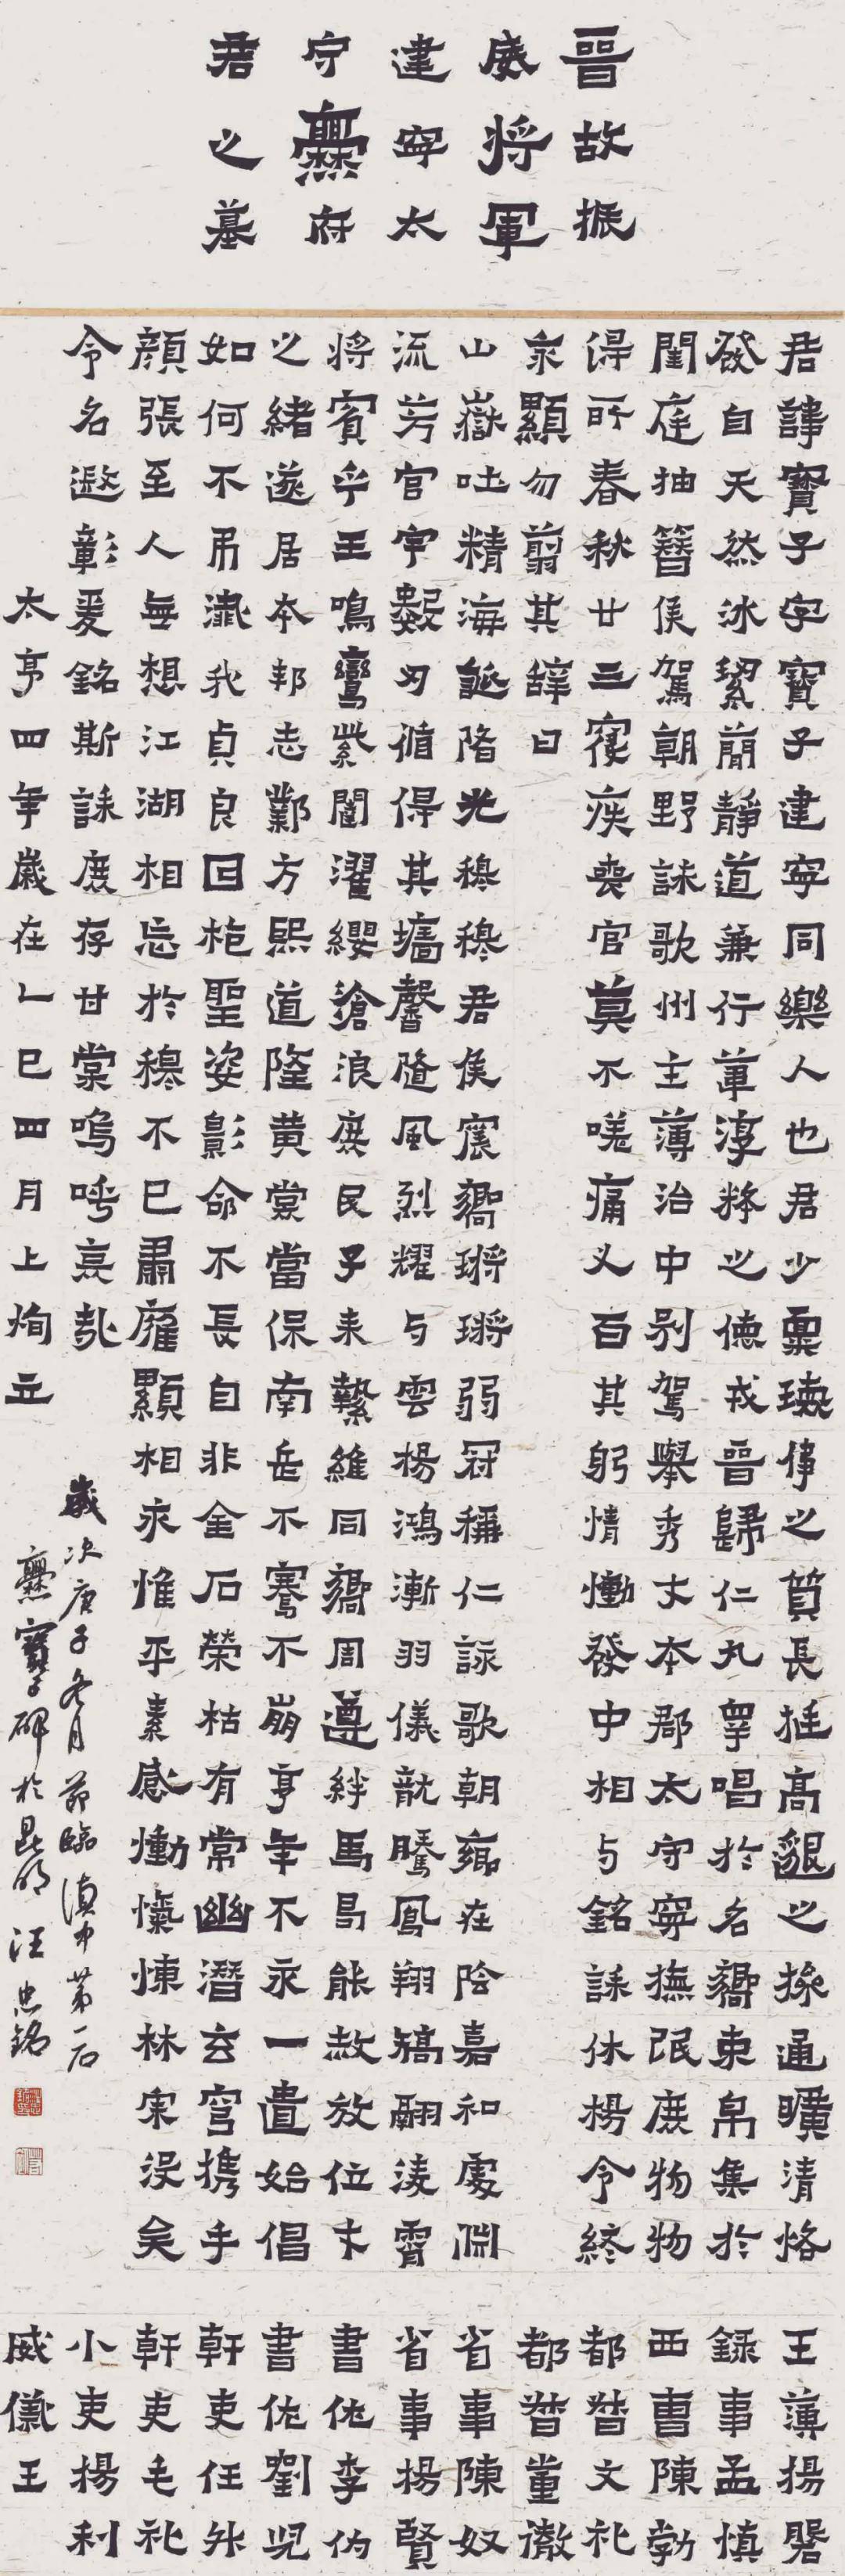 晉故振
威將軍
建寧太
守爨府
君之墓
君諱寶子字寶子建寧同樂人也君少稟瓌偉之質長挺高邈之操通曠清恪
發自天然冰絜簡靜道兼行葦淳粹之德戎晉歸仁九皐唱於名嚮束帛集於
閨庭抽簪俟駕朝野詠歌州主薄治中別駕舉秀才本郡太守寧撫氓庶物物
得所春秋廿三寢疾喪官莫不嗟痛人百其躬情慟發中相与銘誄休揚令終
永顯勿翦其辭曰
山嶽吐精海誕陼光穆穆君侯震嚮鏘鏘弱冠稱仁詠歌朝鄉在陰嘉和處淵
流芳宮宇數刃循得其墻馨隨風烈耀与雲揚鴻漸羽儀龍騰鳳翔矯翮淩霄
將賓乎王鳴鸞紫闥濯纓滄浪庶民子來縶維同嚮周遵絆馬曷能赦放位才
之緒遂居本邦志鄴方熙道隆黄裳當保南岳不騫不崩享年不永一遺始倡
如何不弔殲我貞良回枹聖姿影命不長自非金石榮枯有常幽潛玄穹攜手
顏張至人無想江湖相忘於穆不已肅雍顯相永惟平素感慟愾悚林宗没矣
令名遐彰爰銘斯誄庶存甘棠嗚呼哀哉
太亨四年歲在乙巳四月上恂立
歲次庚子冬月節臨滇中第一石
爨寶子碑於昆明 汪忠銘
王薄揚磐
錄事孟慎
西曹陳勃
都督文礼
都督董徹
省事陳奴
省事揚賢
書佐李仂
書佐劉兒
幹吏任升
幹吏毛礼
小吏揚利
威儀王